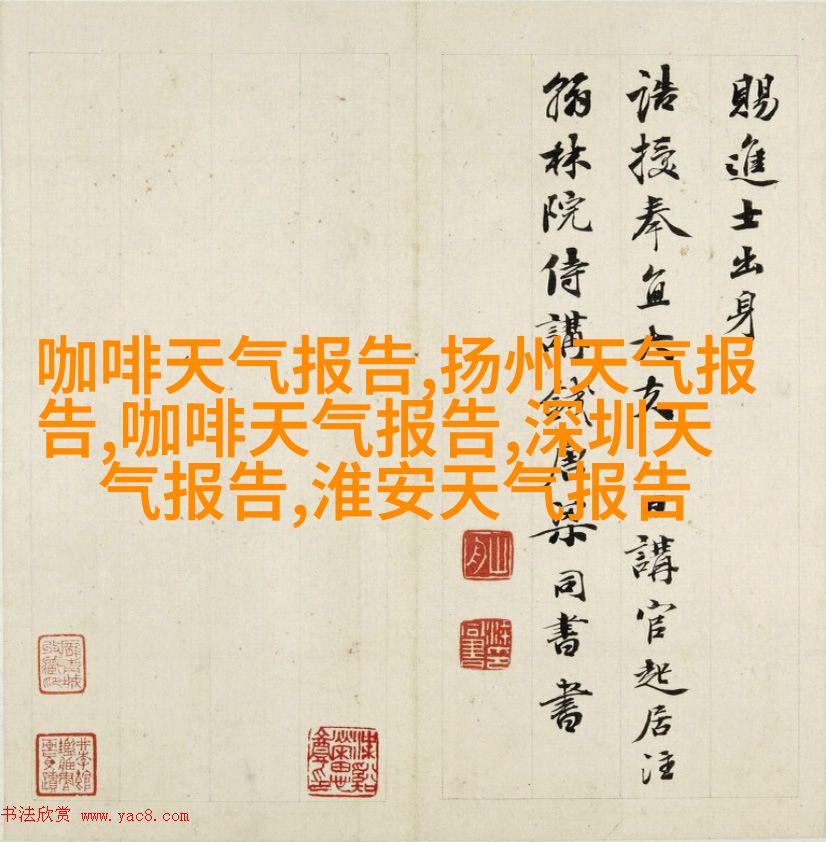 賜進士出身
誥授奉直大夫 日講官起居注
翰林院侍講錢唐梁同書書
咖啡天气报告,扬州天气报
告,咖啡天气报告,深圳天
气报告,淮安天气报告
书法欣赏 www.yac8.com